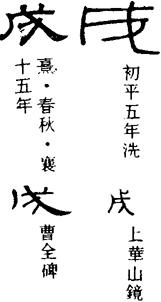 初平五年洗
上華山鏡
熹·春秋·襄
十五年
曹全碑